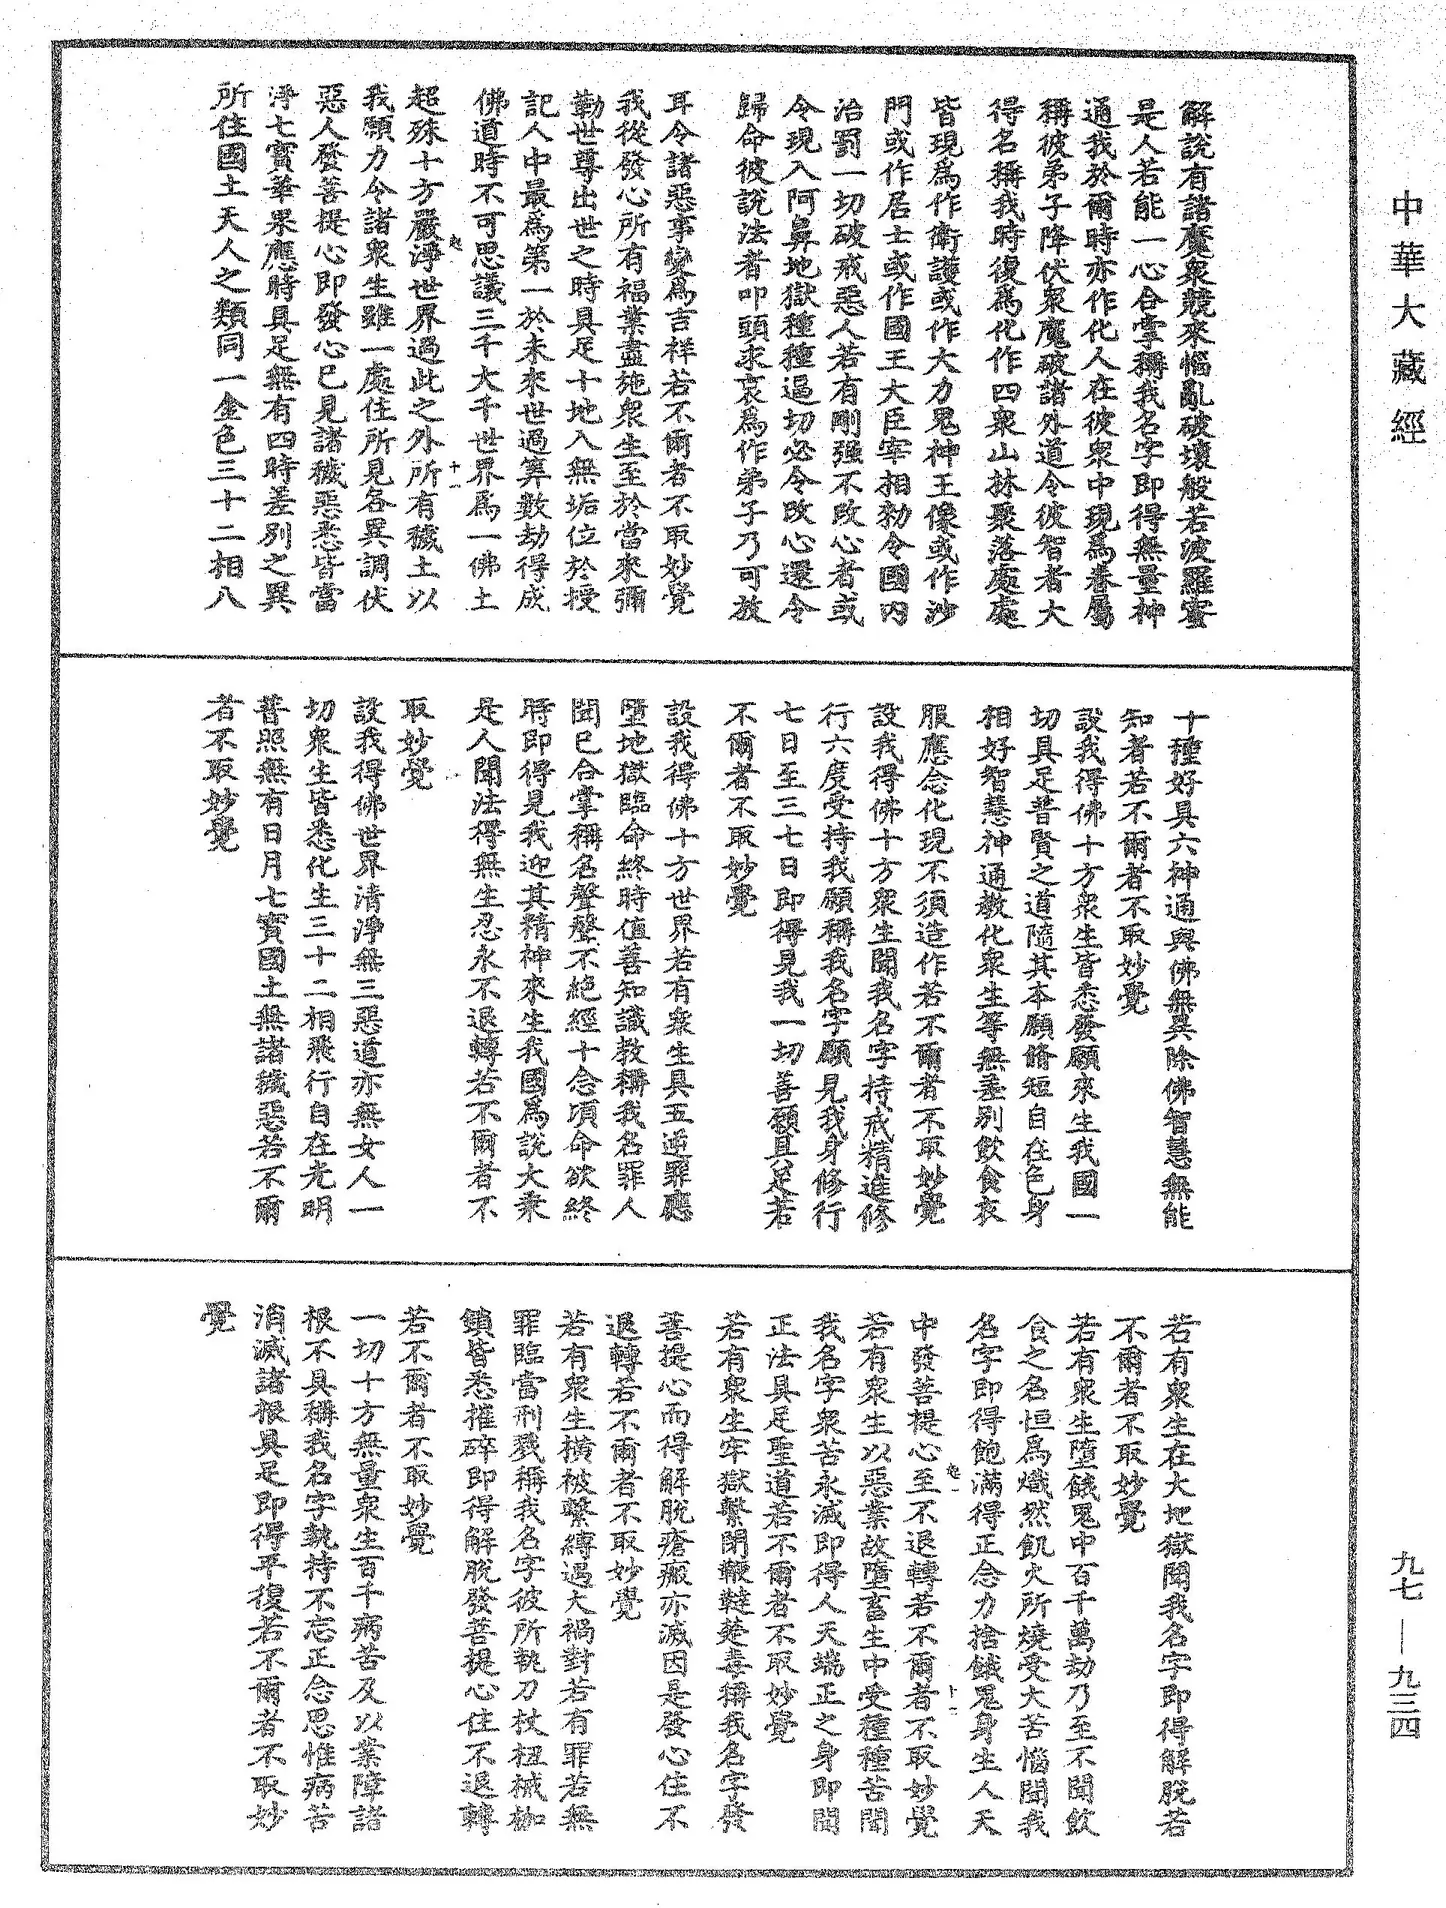 中華大藏經
解說有諸魔眾競來惱亂破壞般若波羅蜜
是人若能一心合掌稱我名字即得無量神
通我於爾時亦作化人在彼眾中現為眷屬
稱彼弟子降伏眾魔破諸外道令彼智者大
得名稱我時復為化作四眾山林聚落處處
皆現為作衛護或作大力鬼神王像或作沙
門或作居士或作國王大臣宰相勑令國內
治罰一切破戒惡人若有剛强不改心者或
令現入阿鼻地獄種種逼切必令改心還令
歸命彼說法者叩頭求哀為作弟子乃可放
耳令諸惡事變為吉祥若不爾者不取妙覺
我從發心所有福業盡施眾生至於當來彌
勒世尊出世之時具足十地入無垢位於授
記人中最為第一於未來世過算數劫得成
佛道時不可思議三千大千世界為一佛土
超殊十方嚴淨世界過此之外所有穢土以
我願力令諸眾生雖一處住所見各異調伏
惡人發菩提心即發心已見諸穢惡悉皆當
淨七寶華果應時具足無有四時差別之異
所住國土天人之類同一金色三十二相八
十種好具六神通與佛無異除佛智慧無能
知者若不爾者不取妙覺
設我得佛十方眾生皆悉發願來生我國一
切具足普賢之道隨其本願脩短自在色身
相好智慧神通教化眾生等無差別飲食衣
服應念化現不須造作若不爾者不取妙覺
設我得佛十方眾生聞我名字持戒精進修
行六度受持我願稱我名字願見我身修行
七日至三七日即得見我一切善願具足若
不爾者不取妙覺
設我得佛十方世界若有眾生具五逆罪應
墮地獄臨命終時值善知識教稱我名罪人
聞已合掌稱名聲聲不絕經十念頃命欲終
時即得見我迎其精神來生我國為說大乘
是人聞法得無生忍永不退轉若不爾者不
取妙覺
設我得佛世界清淨無三惡道亦無女人一
切眾生皆悉化生三十二相飛行自在光明
普照無有日月七寶國土無諸穢惡若不爾
者不取妙覺
若有眾生在大地獄聞我名字即得解脫若
不爾者不取妙覺
若有眾生墮餓鬼中百千萬劫乃至不聞飲
食之名恒為熾然飢火所燒受大苦惱聞我
名字即得飽滿得正念力捨餓鬼身生人天
中發菩提心至不退轉若不爾者不取妙覺
若有眾生以惡業故墮畜生中受種種苦聞
我名字眾苦永滅即得人天端正之身即聞
正法具足聖道若不爾者不取妙覺
若有眾生牢獄繫閉鞭韃楚毒稱我名字發
菩提心而得解脫瘡瘢亦滅因是發心住不
退轉若不爾者不取妙覺
若有眾生橫被繫縛遇大禍對若有罪若無
罪臨當刑戮稱我名字彼所執刀杖杻械枷
鎖皆悉摧碎即得解脫發菩提心住不退轉
若不爾者不取妙覺
一切十方無量眾生百千病苦及以業障諸
根不具稱我名字執持不忘正念思惟病苦
消滅諸根具足即得平復若不爾者不取妙
覺
九七—九三四